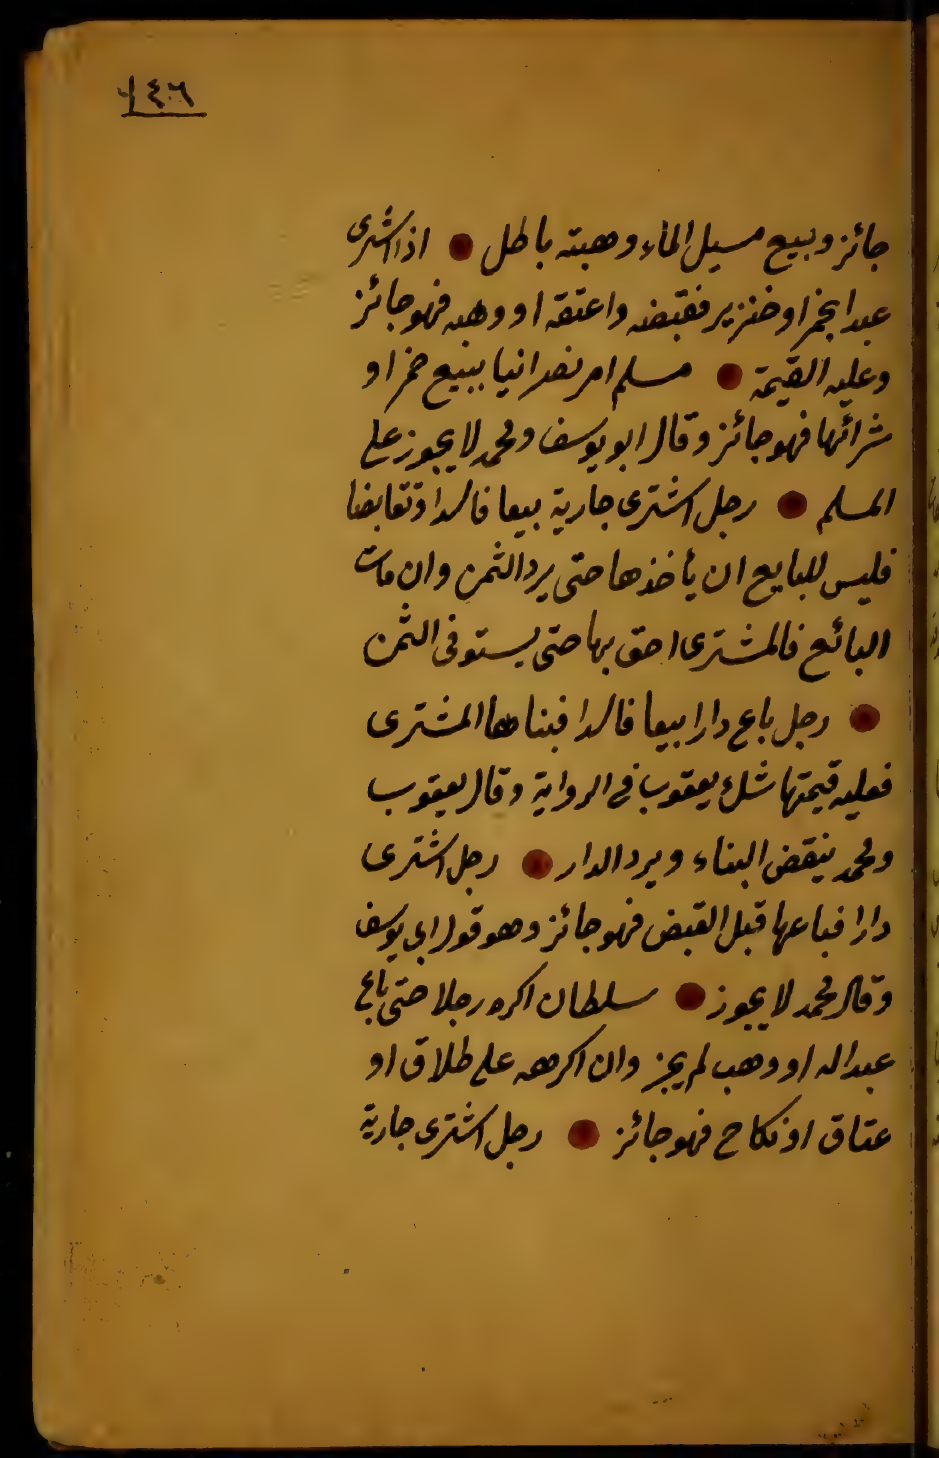 ١٤٦
جائز وبيع مسيل الماء وهبته باطل اذا اشترى
عبدا بخمر او خنزير فقبضه واعتقه او وهبه فهو جائز
وعليه القيمة مسلم امر نصرانيا ببيع خمر او
شرائها فهو جائز وقال ابو يوسف ومحمد لا يجوز على
المسلم رجل اشترى جارية بيعا فاسدا وتقابضا
فليس للبايع ان يأخذها حتى يرد الثمن وان مات
البائع فالمشترى احق بها حتى يستوفى الثمن
رجل باع دارا بيعا فاسدا فبناها المشترى
فعليه قيمتها شك يعقوب فى الرواية وقال يعقوب
ومحمد ينقض البناء ويرد الدار رجل اشترى
دارا فباعها قبل القبض فهو جائز وهو قول ابى يوسف
وقال محمد لا يجوز سلطان اكره رجلا حتى باع
عبدا له او وهب لم يجز وان اكرهه على طلاق او
عتاق او نكاح فهو جائز رجل اشترى جارية